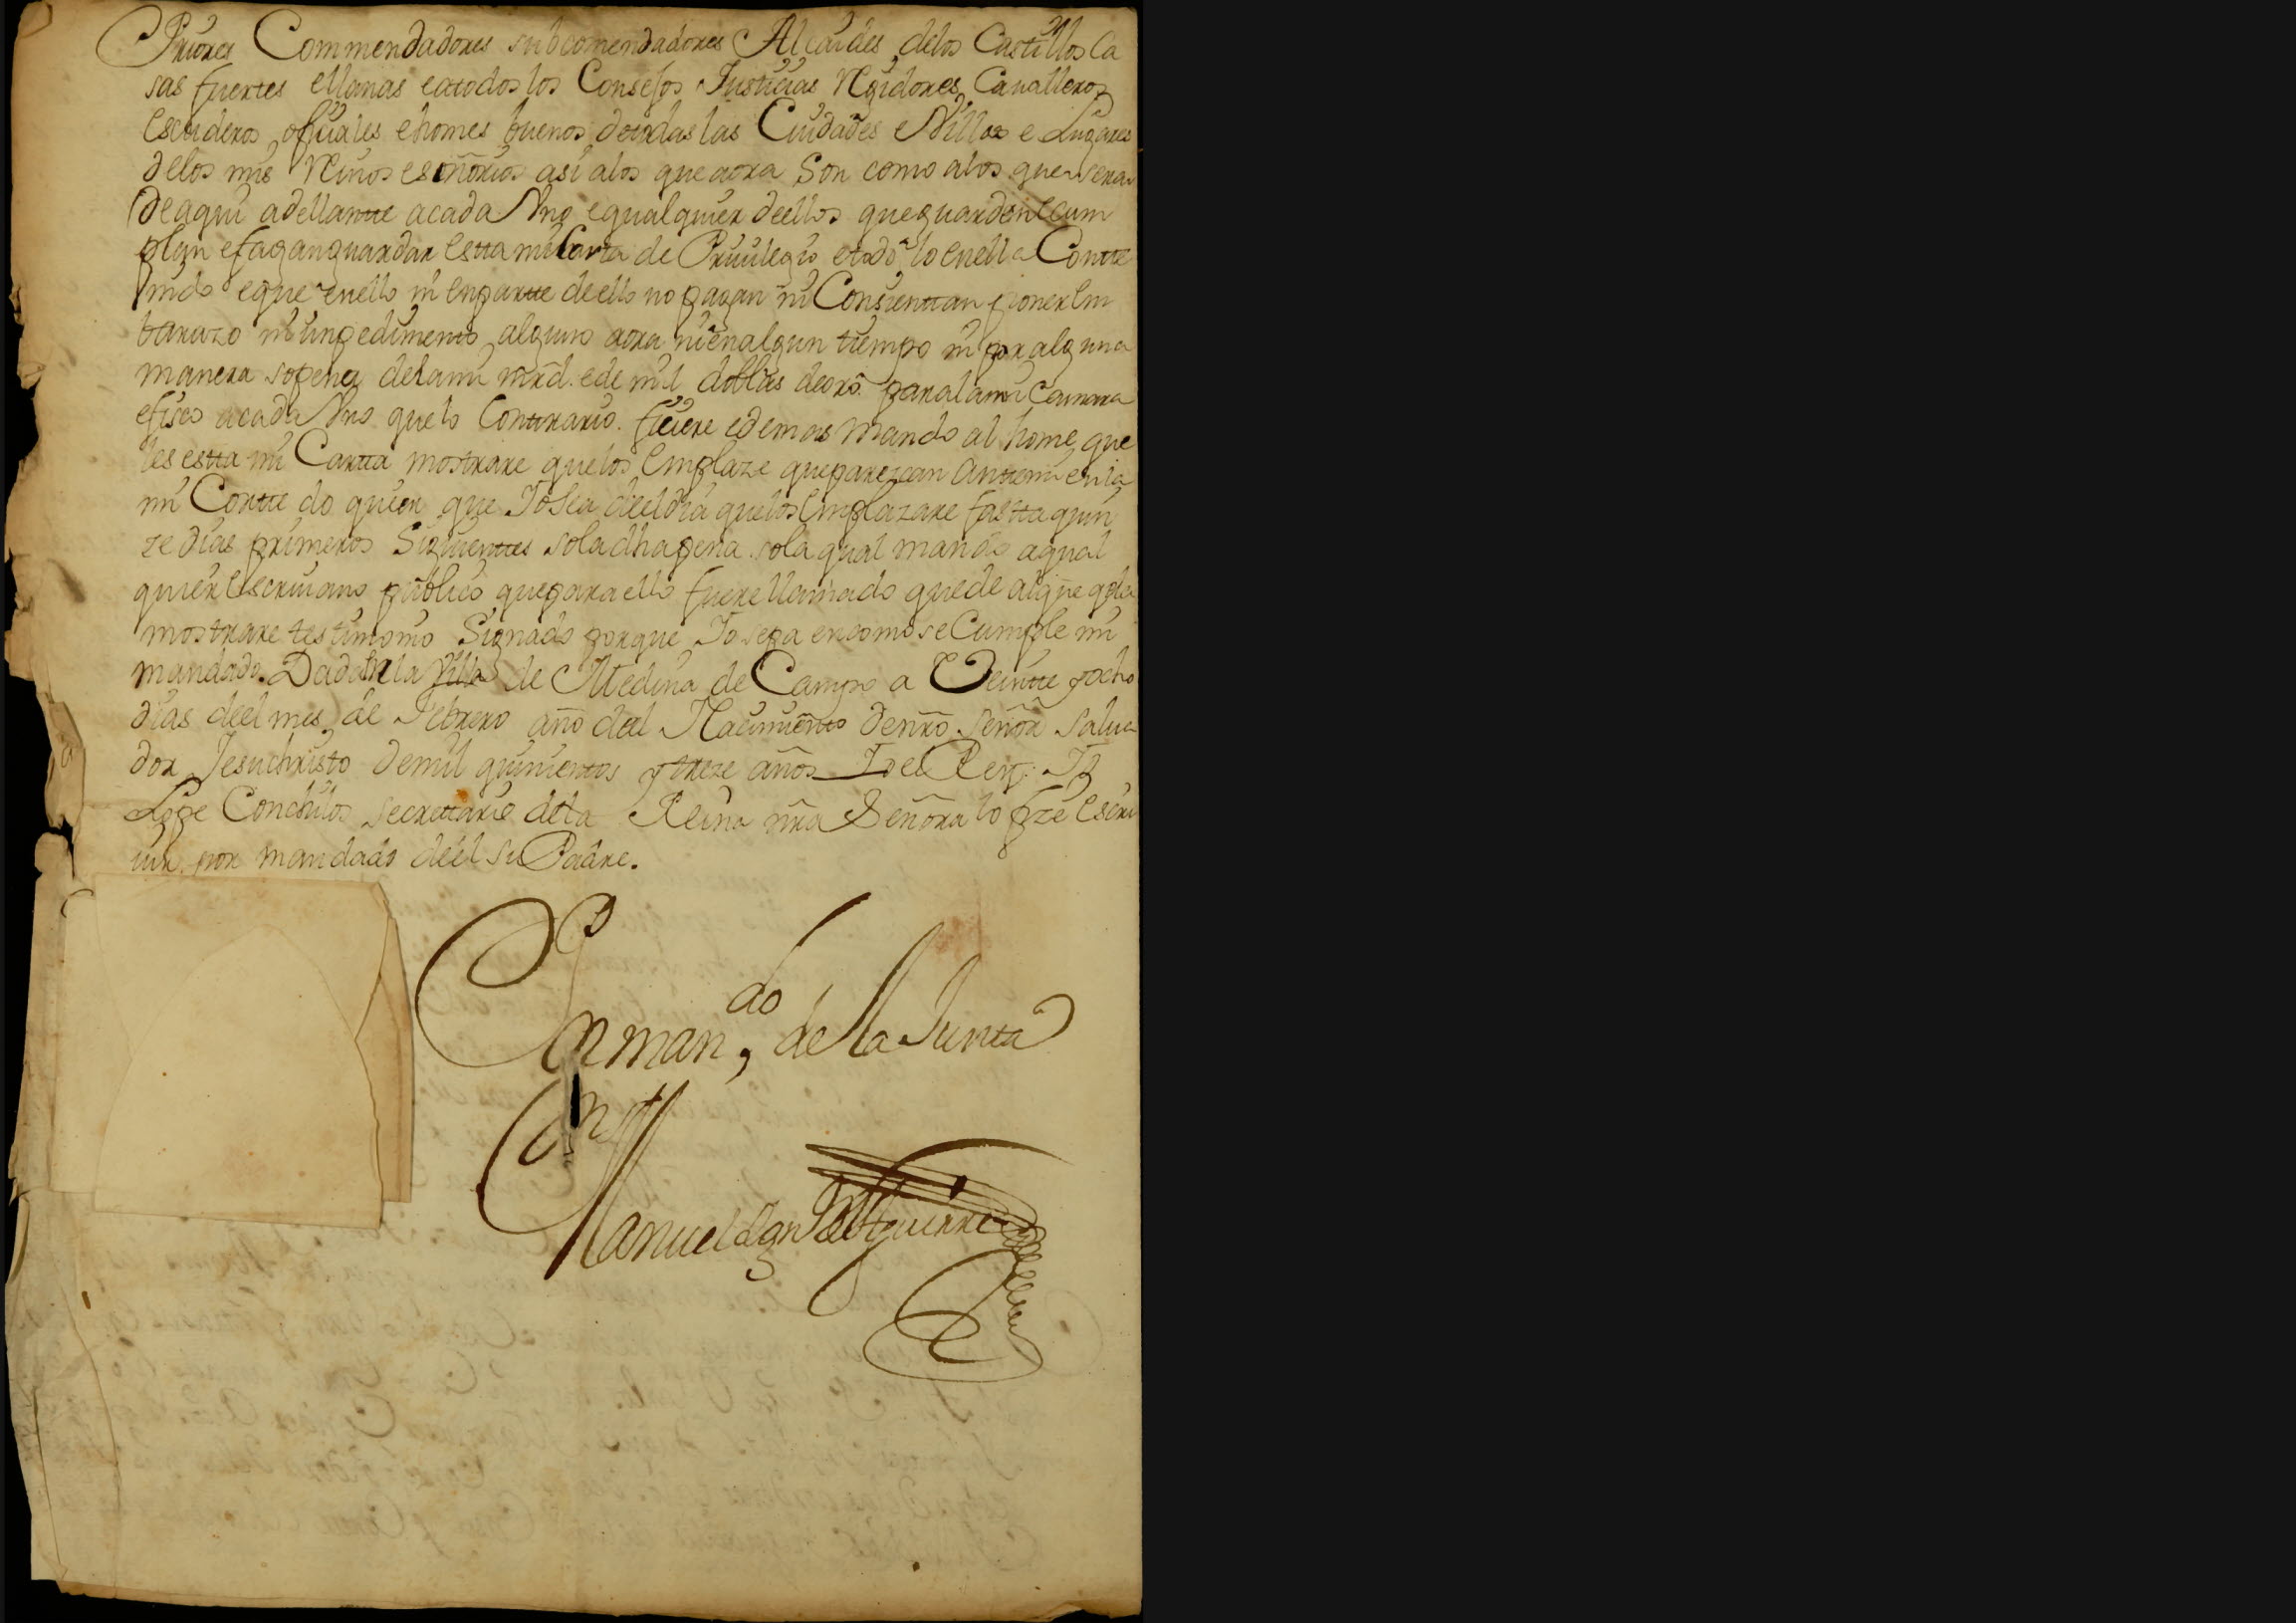 Priores Commendadores subcomendadores Alcaides delos Castillos Ca
sas fuertes ellanas eatodos los Consejos Justicias Rexidores Cavalleros
Escuderos oficiales ehomes buenos detodas las Ciudades eVillas e Lugares
delos mis Reinos eseñorios asi alos que aora Son como alos que seran
de aqui adellantte acada Vno equalquier deellos queguarden ecum
plan efagan guardar estta mi Cartta de Priuilegio etodo lo enella Contte
nido eque enello ni enpartte deello no pagan ni Consienttan poner em
barazo ni inpedimento alguno aora nienalgun tiempo ni por alguna
manera sopena delami mrd. ede mil doblas deoro paralami Camara
efisco acada Vno quelo Conttrario ficiere edemas mando al home que
les estta mi Cartta mostrare quelos Emplaze queparezcan Anttemi enla
mi Cortte do quier que Io Sea deeldia quelos Emplazare fastta quin
ze dias primeros Siguienttes sola dha pena sola qual mando aqual
quier escriuano publico quepara ello fuere llamado quede alque gela
mostrare testimonio Signado porque Io sepa encomo se Cumple mi
mandado. Dada en la Villa de Medina de Campo a Veintte y ocho
dias deel mes de Febrero año del Nacimiento denro. Señor Salua
dor Jesuchristo demil quinientos y treze años Io el Rey: Io
Lope Conchilos secrettario dela Reina nra Señora lo fize Escri
uir por mandado deel su Padre.
Por man.do de la Junta
Manuel de Aguirre